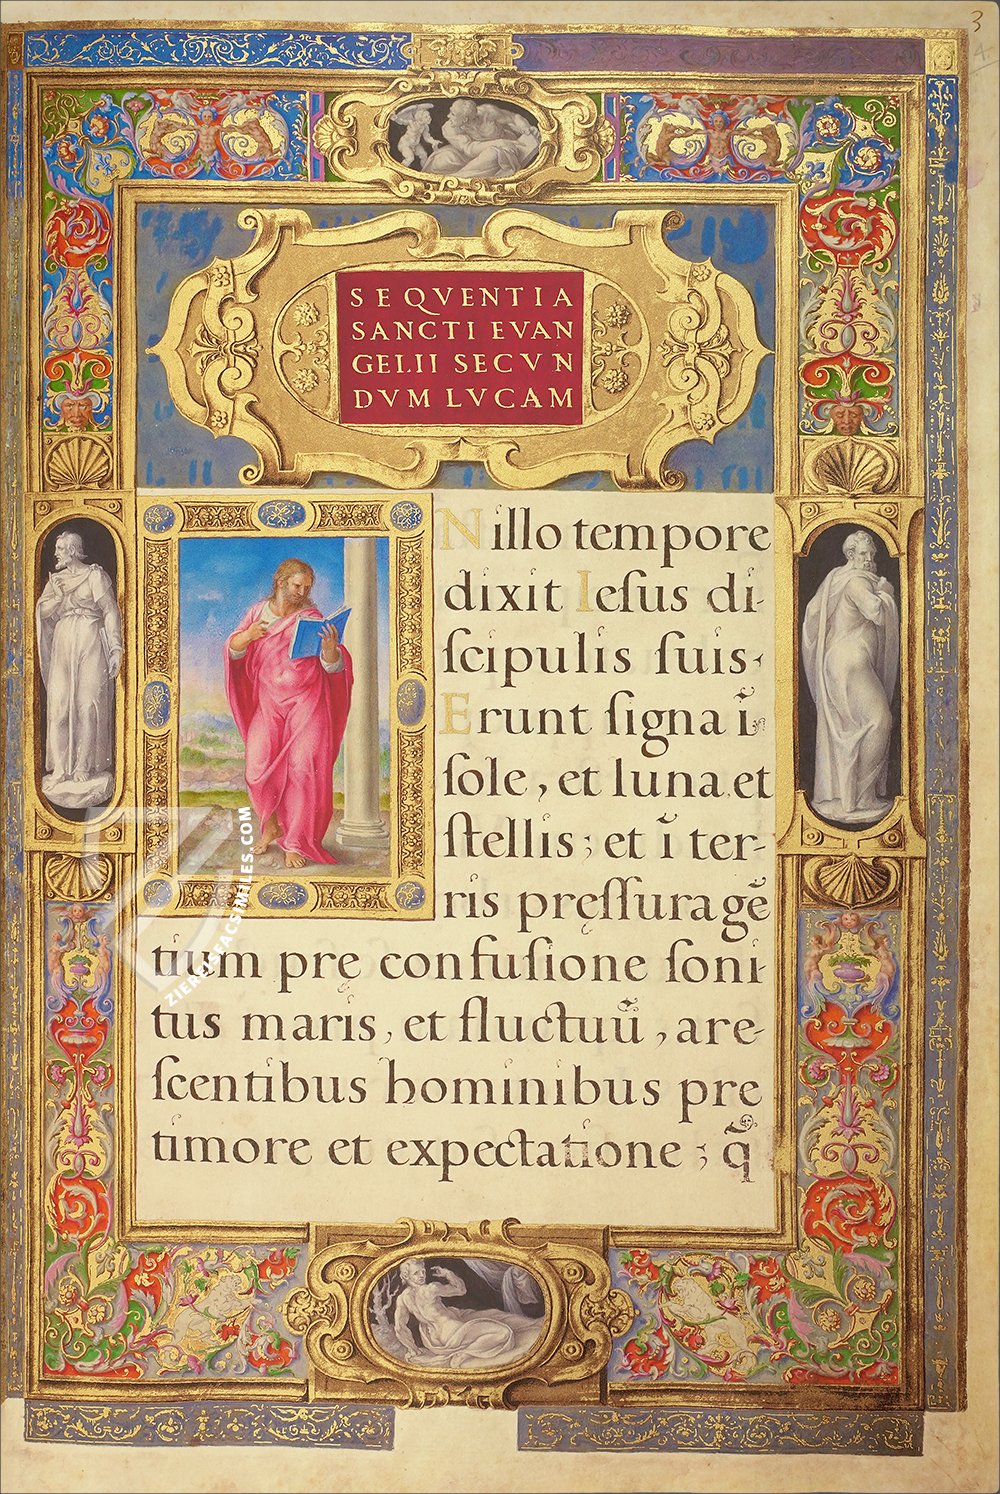 3
4
SEQVENTIA
SANCTI EVAN
GELII SECVN
DVM LVCAM
N illo tempore
dixit Iesus di-
scipulis suis.
Erunt signa ī
sole, et luna et
stellis; et ī ter-
ris pręssura gē
tium prę confusione soni
tus maris, et fluctuū, are-
scentibus hominibus pre
timore et expectatione; q̄
ZIEREISFACSIMILES.COM